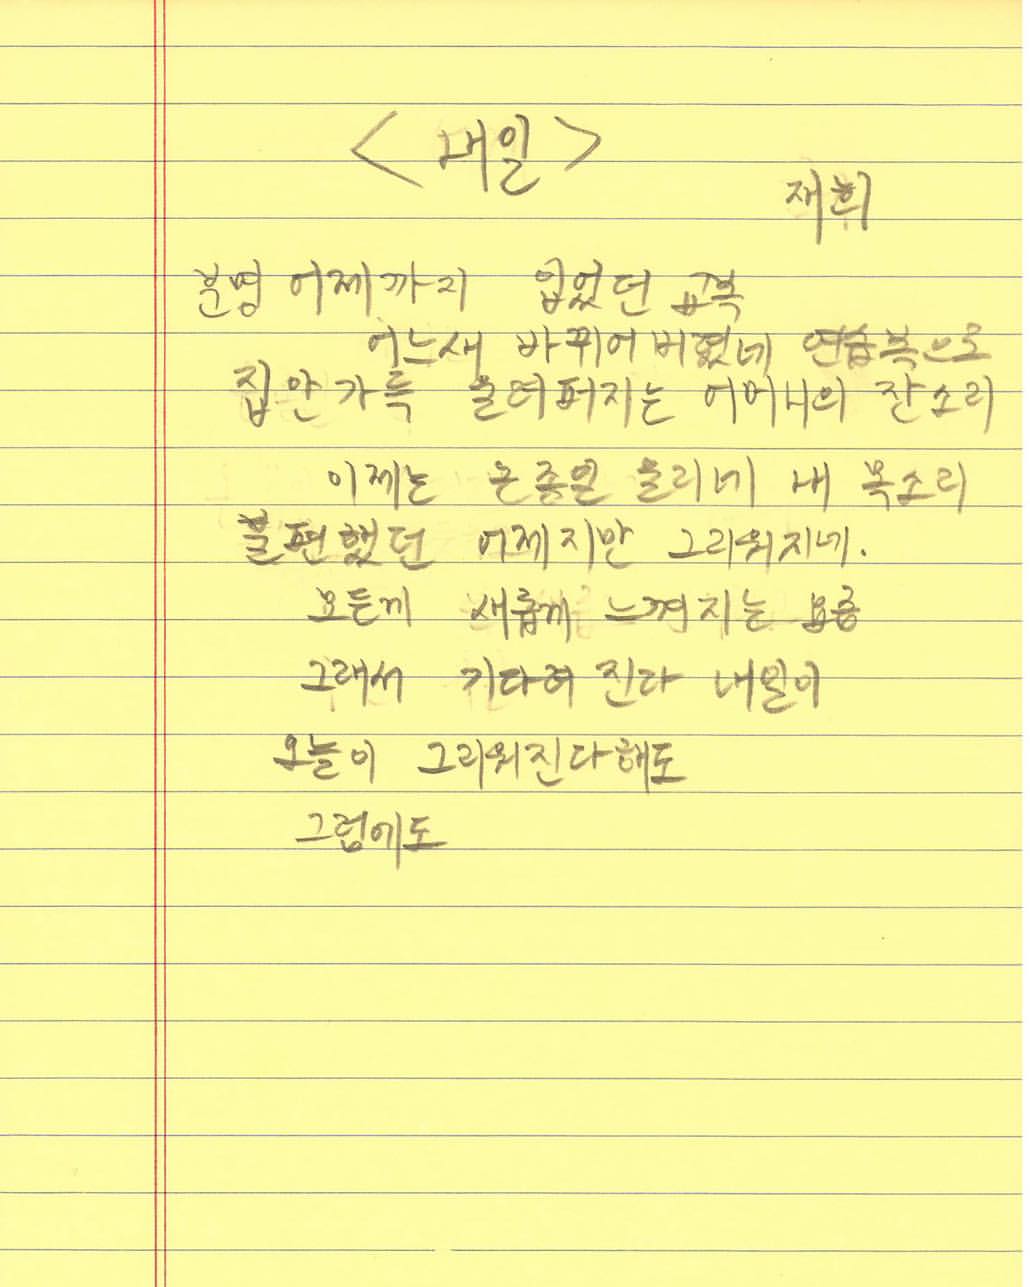 < 내일 >
재희
분명 어제까지 입었던 교복
어느새 바뀌어버렸네 연습복으로
집안가득 울려퍼지는 어머니의 잔소리
이제는 온종일 울리네 내 목소리
불편했던 어제지만 그리워지네.
모든게 새롭게 느껴지는 요즘
그래서 기다려 진다 내일이
오늘이 그리워진다해도
그럼에도